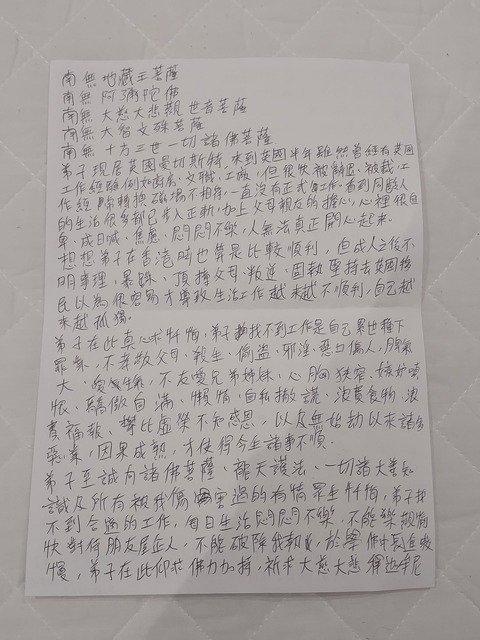 南無地藏王菩薩
南無阿彌陀佛
南無大慈大悲觀世音菩薩
南無大智文殊菩薩
南無十方三世一切諸佛菩薩
弟子現居英國曼切斯特，來到英國半年雖然曾經有英國
工作經驗例如廚房、文職、工廠，但很快被辭退、被裁，工
作經歷轉換，磁場不相符，一直沒有正式的工作，看到同齡人
的生活很多都已步入正軌，加上父母親友的擔心，心裡很自
卑、成日喊、焦慮、悶悶不樂，人無法真正開心起來。
想想弟子在香港時也算是比較順利，但成人之後不
明事理，暴躁、頂撞父母、叛逆、固執堅持去英國移
民以為很容易才導致生活工作越來越不順利，自己越
來越孤獨。
弟子在此真心求懺悔，弟子找不到工作是自己累世種下
罪業，不孝敬父母、殺生、偷盜、邪淫、惡口傷人，脾氣
大、愛生氣，不友愛兄弟姊妹、心胸狹窄、嫉妒嗔
恨、驕傲自滿、懶惰、自私撒謊、浪費食物、浪
費福報、攀比虛榮不知感恩，以及無始劫以來諸多
惡業，因果成熟，才使得今生諸事不順。
弟子至誠向諸佛菩薩、龍天護法、一切諸大善知
識及所有被我傷害過的有情眾生懺悔，弟子找
不到合適的工作，每日生活悶悶不樂，不能樂觀愉
快對待朋友屋企人，不能破除我執，於學佛中長進較
慢，弟子在此仰求佛力加持，祈求大慈大悲釋迦牟尼